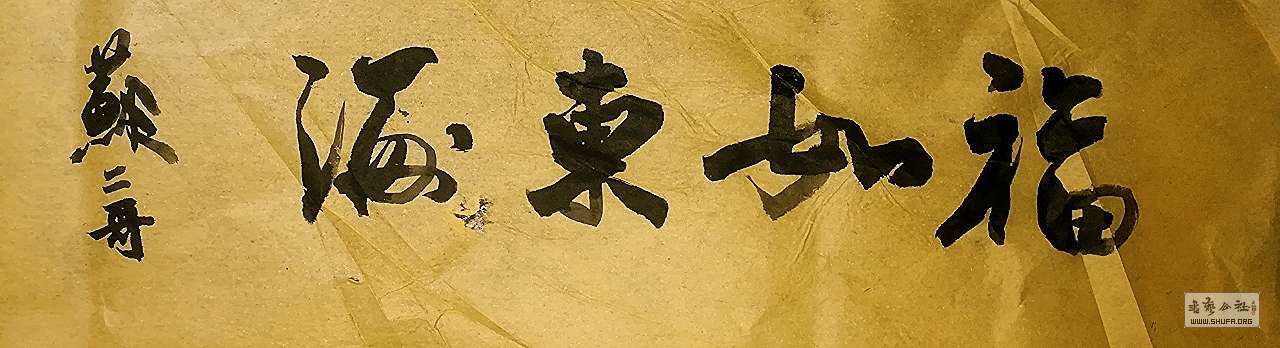 福如東海
蘇二哥
书艺公社
WWW.SHUFA.ORG